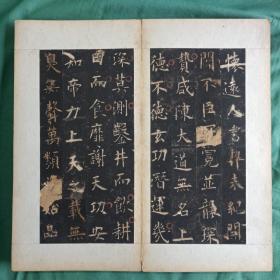 懷遠人書契未紀開
闢不臣冕並襲琛
贄咸陳大道無名上
德不德玄功潛運幾
深莫測鑿井而飲耕
田而食靡謝天功安
知帝力上天之載無
臭無聲萬類始品